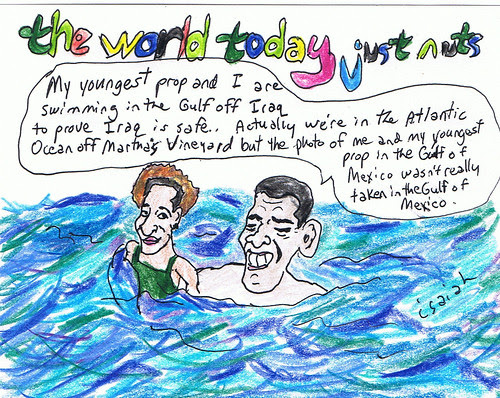 the world today just nuts
My youngest prop and I are
swimming in the Gulf off Iraq
to prove Iraq is safe.. Actually we're in the Atlantic
Ocean off Martha's Vineyard but the photo of me and my youngest
prop in the Gulf of
Mexico wasn't really
taken in the Gulf of
Mexico.
isaiah